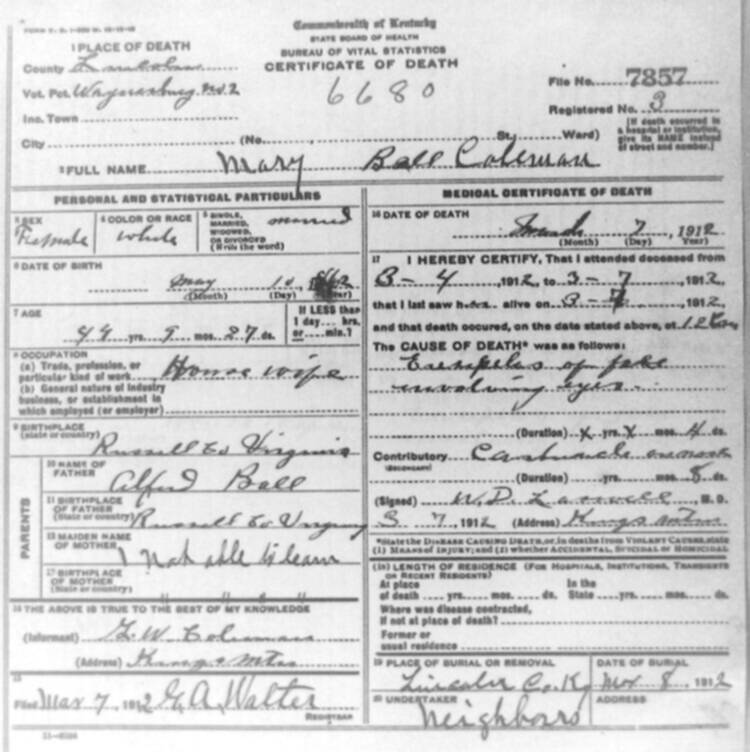 Commonwealth of Kentucky
STATE BOARD OF HEALTH
BUREAU OF VITAL STATISTICS
CERTIFICATE OF DEATH
6680
1 PLACE OF DEATH
County Lincoln
Vot. Pct. Waynesburg No 2
Inc. Town
City (No. St. Ward)
File No. 7857
Registered No. 3
(If death occurred in a hospital or institution, give its NAME instead of street and number.)
2 FULL NAME Mary Ball Coleman
PERSONAL AND STATISTICAL PARTICULARS
3 SEX
Female
4 COLOR OR RACE
white
5 SINGLE, MARRIED, WIDOWED, OR DIVORCED (Write the word)
married
6 DATE OF BIRTH
May 10
(Month) (Day) (Year)
7 AGE
49 yrs. 9 mos. 27 ds.
If LESS than 1 day... hrs. or ... min.?
8 OCCUPATION
(a) Trade, profession, or particular kind of work House wife
(b) General nature of industry business, or establishment in which employed (or employer)
9 BIRTHPLACE
(state or country)
Russell Co Virginia
PARENTS
10 NAME OF FATHER
Alfred Ball
11 BIRTHPLACE OF FATHER
(State or country)
Russell Co Virginia
12 MAIDEN NAME OF MOTHER
not able to learn
BIRTHPLACE OF MOTHER
(State or country)
14 THE ABOVE IS TRUE TO THE BEST OF MY KNOWLEDGE
(Informant) G. W. Coleman
(Address) Kings Mtn
15
Filed Mar 7, 1912 G. A. Walter
REGISTRAR
MEDICAL CERTIFICATE OF DEATH
16 DATE OF DEATH
March 7, 1912
(Month) (Day) Year
17 I HEREBY CERTIFY, That I attended deceased from
3-4, 1912, to 3-7, 1912,
that I last saw her alive on 3-7, 1912,
and that death occured, on the date stated above, at 12
The CAUSE OF DEATH* was as follows:
Erysipelas of face
involving eyes.
(Duration) x yrs. x mos. 4 ds.
Contributory Carbuncle on
(SECONDARY)
(Duration) yrs. mos. 8 ds.
(Signed) W. D. Laswell, M. D.
3 7, 1912 (Address) Kings Mtn
*State the DISEASE CAUSING DEATH, or, in deaths from VIOLENT CAUSES, state
(1) MEANS OF INJURY; and (2) whether ACCIDENTAL, SUICIDAL OR HOMICIDAL
LENGTH OF RESIDENCE (FOR HOSPITALS, INSTITUTIONS, TRANSIENTS OR RECENT RESIDENTS)
At place of death yrs. mos. ds. In the State yrs. mos. ds.
Where was disease contracted, If not at place of death?
Former or usual residence
19 PLACE OF BURIAL OR REMOVAL
Lincoln Co. Ky
DATE OF BURIAL
Mar 8, 1912
20 UNDERTAKER
Neighbours
ADDRESS